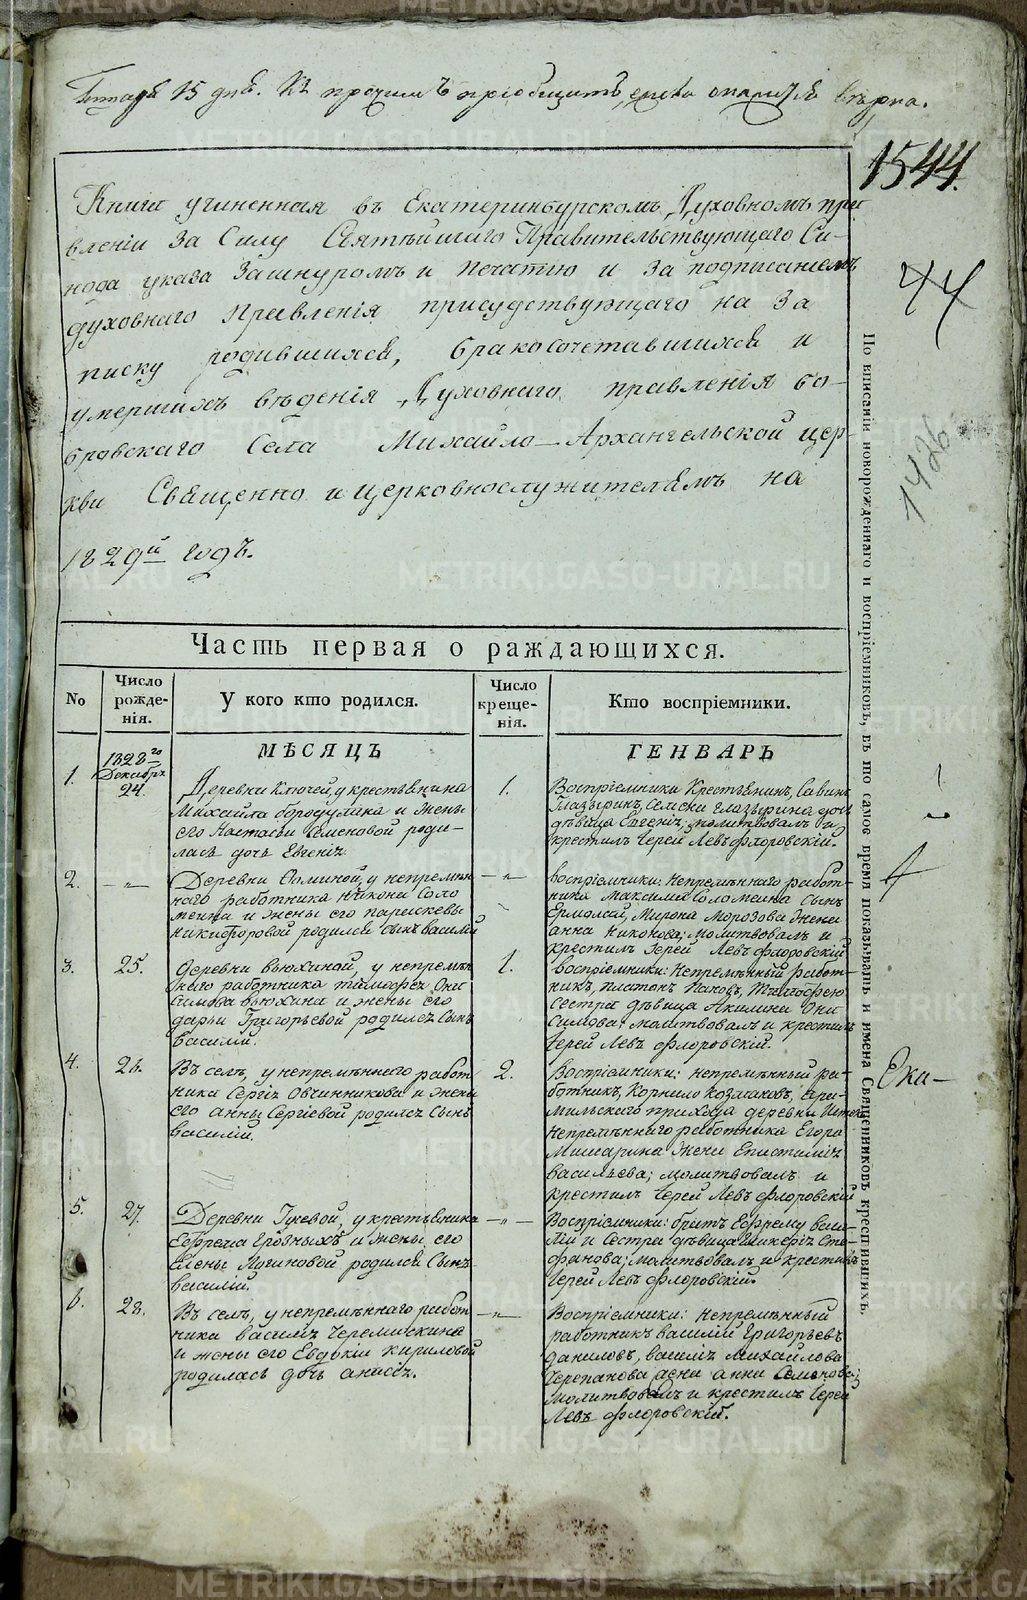 15 дня. Къ прочимъ пріобщить
вѣрна.
1544.
Книга учиненная въ Екатеринбурскомъ Духовномъ пра
вленіи за Силу Святѣйшаго Правительствующаго Си-
нода указа За шнуромъ и печатію и За подписаніемъ
духовнаго Правленія присудствующаго на За
писку родившихся, бракосочетавшихся и
умершихъ вѣденія Духовнаго правленія бо-
бровскаго Села Михайло-Архангельской цер-
кви Священно и церковнослужителямъ на
1829й годъ.
44
1426
По вписаніи новорожденнаго и воспріемниковъ, въ то самое время показывать и имена Священниковъ крестившихъ.
Часть первая о раждающихся.
No
Число рожде-нія.
У кого кто родился.
Число креще-нія.
Кто воспріемники.
МѢСЯЦЪ
ГЕНВАРЬ
1.
1828го
Декабрь
24.
Деревни Ключей, у крестьянина
Михайла бородулина и жены
его Настасьи Семеновой роди-
лась дочь Евгенія
1.
Воспріемники Крестьянинъ, Савинъ
Глазыринъ, Глазырина дочь
дѣвица Евгенія; молитвовалъ и
крестилъ Іерей Левъ флоровскій.
2.
— „ —
Деревни у непремѣн
наго работника Никона Соло
меина и жены его парескевы
никифоровой родился Сынъ василій
— „ —
воспріемники: Непремѣннаго работ-
ника Максима Соломеина Сынъ
Ермолай, Мирона Морозова жена
анна Никонова; молитвовалъ и
крестилъ Іерей Левъ флоровскій
3.
25.
деревни вьюхиной, у непремѣн
наго работника тимофея Они
симова вьюхина и жены его
дарьи Григорьевой родился Сынъ
василій.
1.
воспріемники: Непремѣнный работ-
никъ платонъ Пановъ, Тимофею
сестра дѣвица Акилина Они
симова: молитвовалъ и крестилъ
Іерей Левъ флоровскій.
4.
26.
Въ селѣ, у непремѣннаго работ
ника Сергія Овчинникова и жены
его анны Сергіевой родился Сынъ
василій.
2.
Воспріемники: непремѣнный ра-
ботникъ, Корнило Козлаковъ, Ара-
мильскаго прихода деревни
непремѣннаго работника Егора
Мишарина жена Епистимія
васильева; молитвовалъ и
крестилъ Іерей Левъ флоровскій
Ека-
5.
27.
Деревни у крестьянина
Ефрема Грозныхъ и жены его
Елены Логиновой родился Сынъ
василій.
— „ —
Воспріемники: братъ Ефрему васи-
лій и Сестра дѣвица Гликерія Сте-
фанова; молитвовалъ и крестилъ
Іерей Левъ флоровскій.
6.
28.
Въ селѣ, у непремѣннаго работ
ника василія Черемискина
и жены его Евдокіи кириловой
родилась дочь анисія.
— „ —
Воспріемники: непремѣнный
работникъ василій Григорьевъ
даниловъ, василія михайлова
Черепанова жена анна Семенова;
молитвовалъ и крестилъ Іерей
Левъ флоровскій.
METRIKI.GASO-URAL.RU